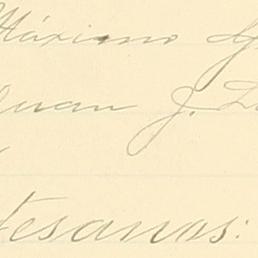 Máximo
Juan J.
tesanos: